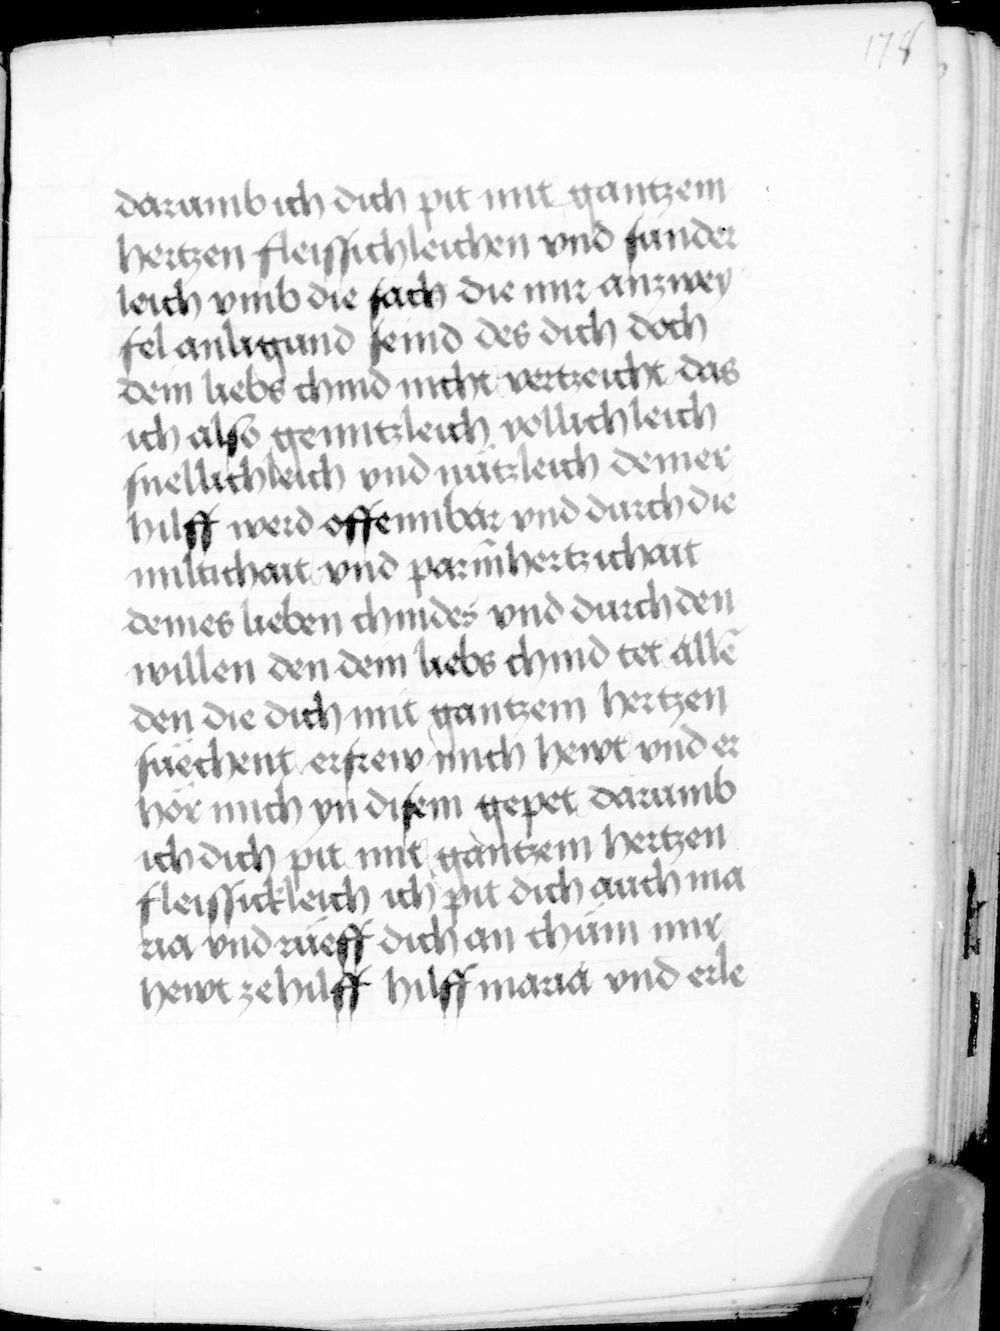 178
darumb ich dich pit mit gantzem
hertzen fleissichleichen vnd sunder
leich vmb die sach die mir anzwey
fel anligund seind des dich doch
dein liebs chind nicht vertzeicht das
ich also genutzleich vollichleich
snellichleich vnd nützleich deiner
hilff werd offennbar vnd durch die
miltichait vnd parm̄hertzichait
deines lieben chindes vnd durch den
willen den dein liebs chind tet allē
den die dich mit gantzem hertzen
süechent erfrew mich hewt vnd er
hör mich yn disem gepet darumb
ich dich pit mit gantzem hertzen
fleissickleich ich pit dich auch ma
ria vnd rüeff dich an chüm mir
hewt ze hilff hilff maria vnd erle